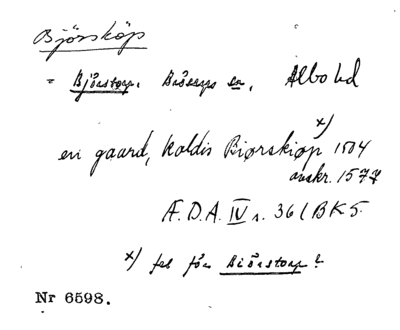 Björsköp
= Björstorp. Brösarps sn, Albo hd
x)
en gaard, kaldis Biørskiøp 1504
avskr. 1577
Æ.D.A. IV s. 36 (BK5.
x) fel för Biörstorp?
Nr 6598.